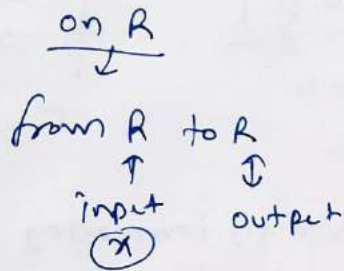 on R
from R to R
input output
x